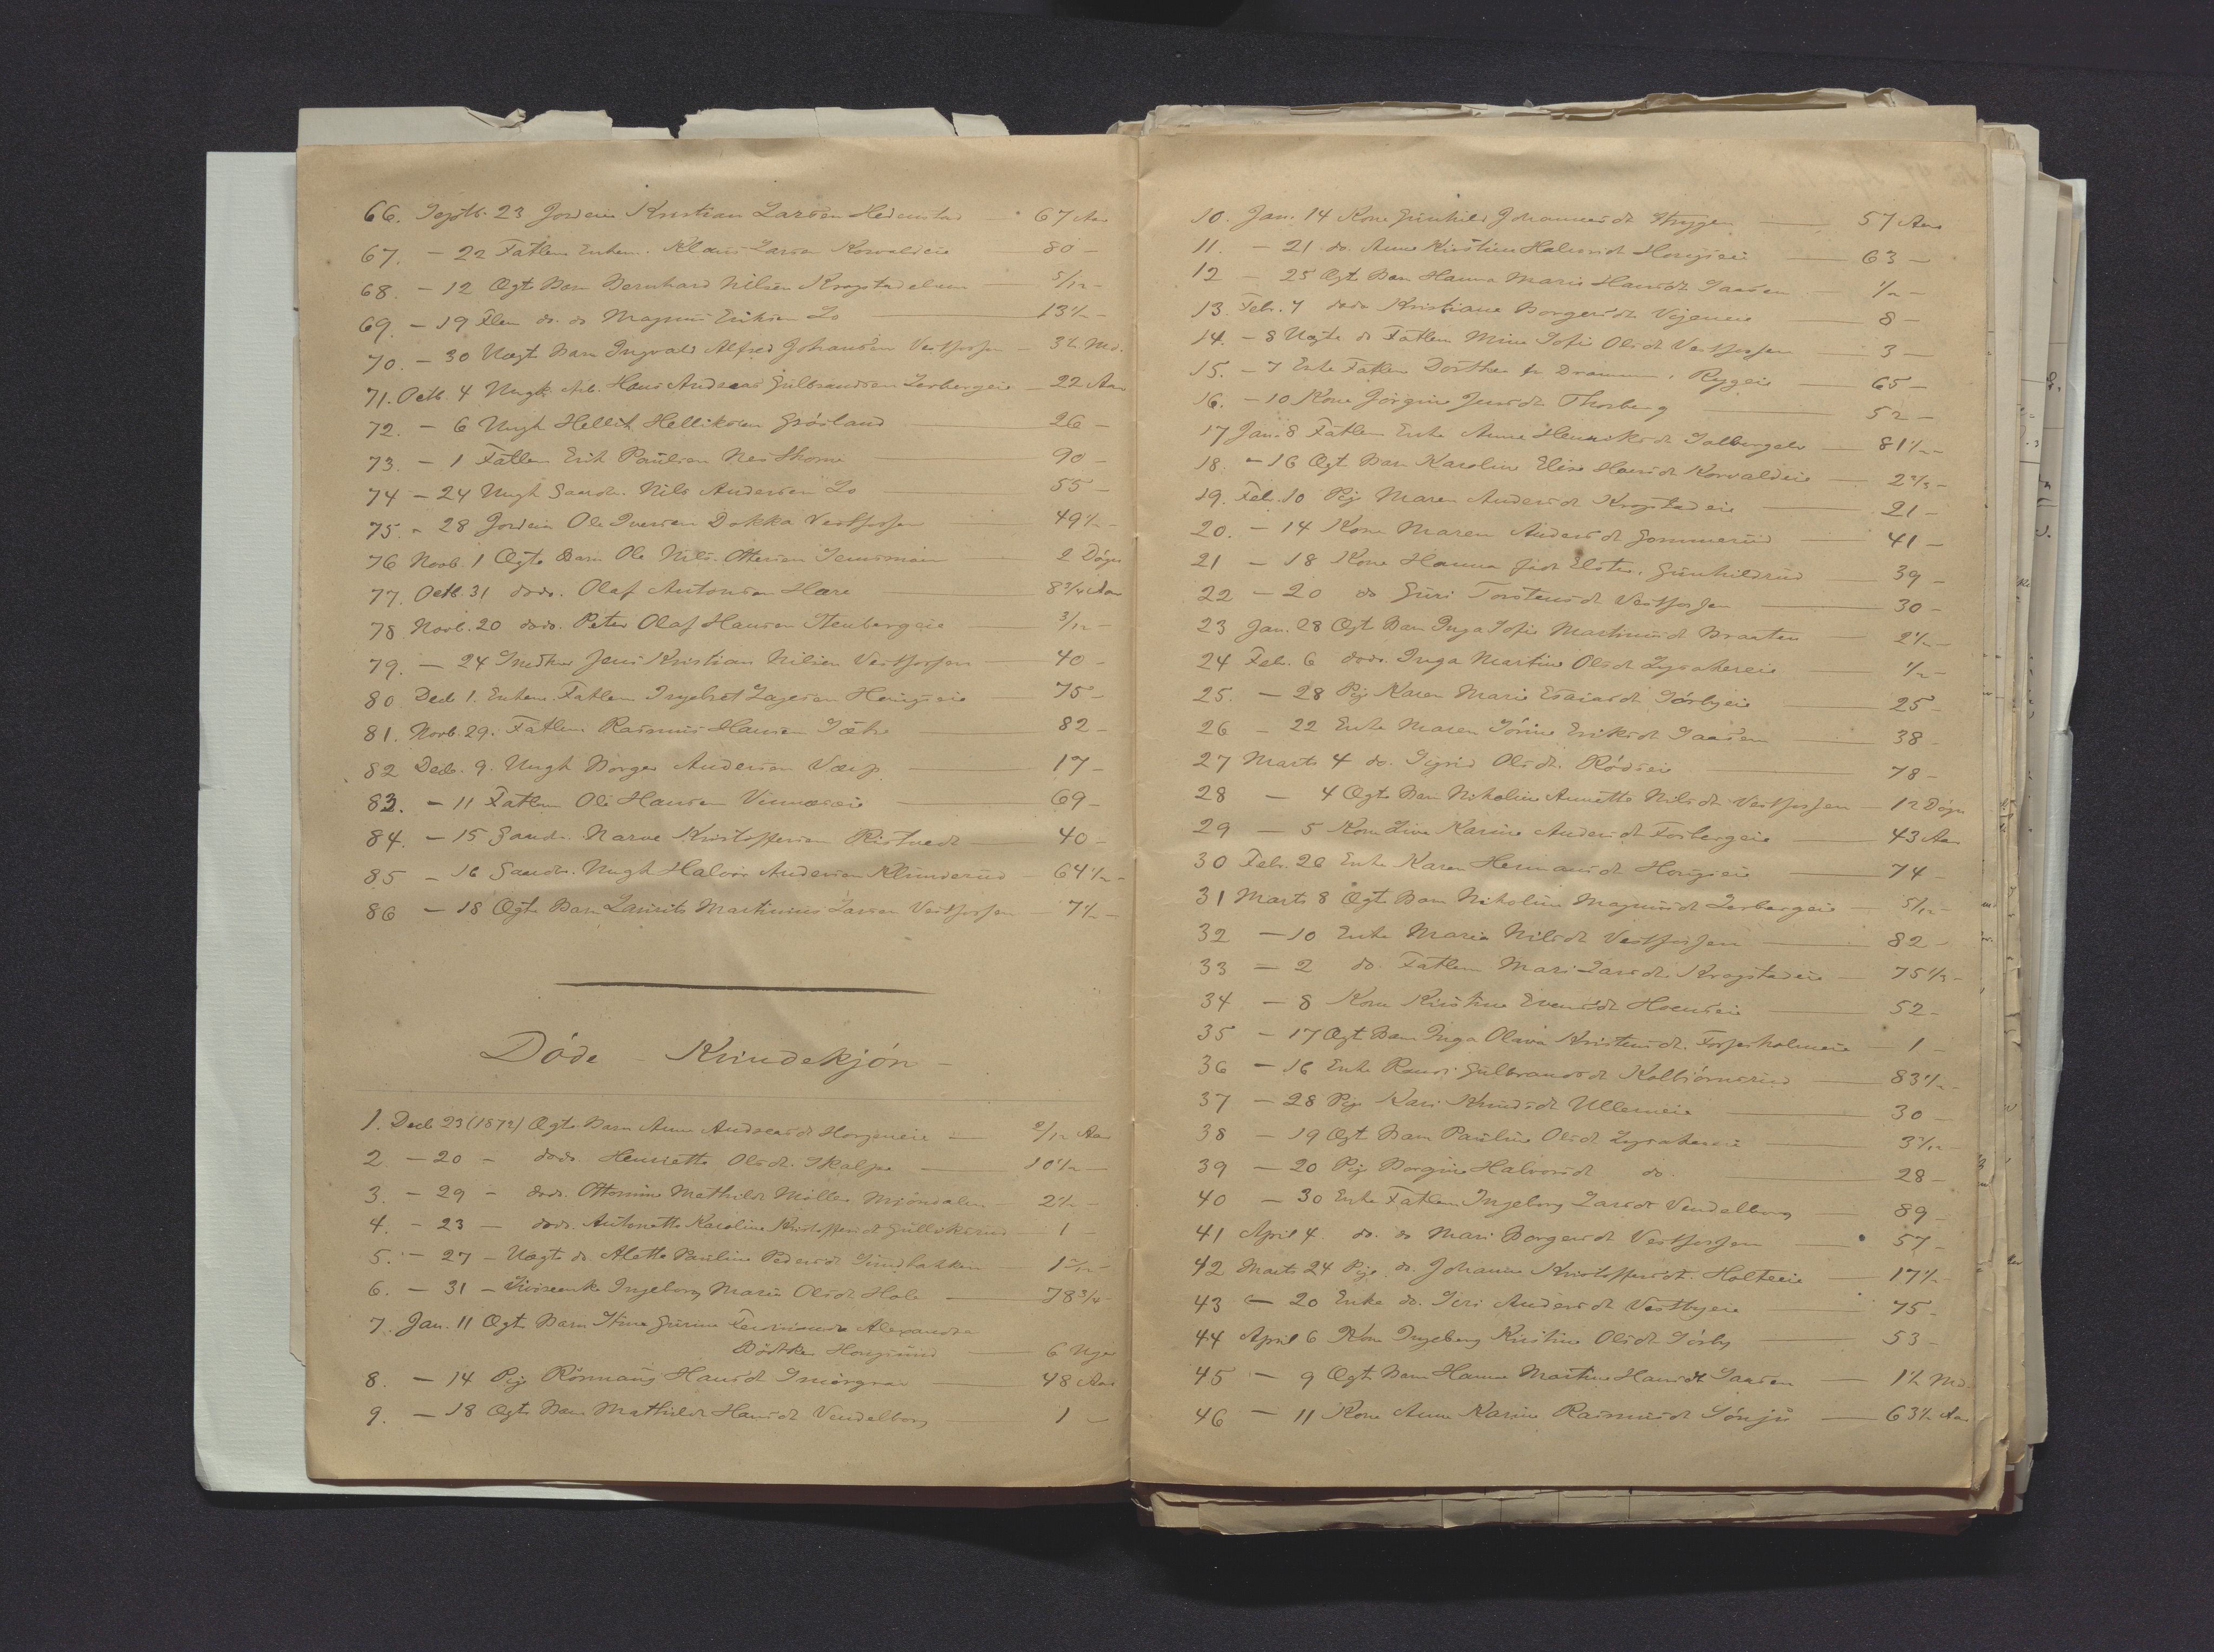 66. Septb. 23 Jordein Kristian Larsen Hedenstad — 67 Aar
67. — 22 Fatlem Enkem. Klaus Larsen Korvaldeie — 80 —
68. — 12 Ægte Barn Bernhard Nilsen Krogstadelven — 5/12 —
69. — 19 do. do Magnus Eriksen Lo — 13 1/2 —
70. — 30 Uægt Barn Ingvald Alfred Johansen Vestfossen — 3 1/2 Md.
71. Octb. 4 Ungk. Arb. Hans Andreas Gulbrandsen Lerbergeie — 22 Aar
72. — 6 Ungk Hellik Helliksen Grøsland — 26 —
73. — 1 Fatlem Erik Paulsen — 90 —
74 — 24 Ungk Gaardb. Nils Andersen Lo — 55 —
75. — 28 Jordein Ole Iversen Dokka Vestfossen — 49 1/2 —
76 Novb. 1 Ægte Barn Ole Nils. Ottersen — 2 Døgn
77. Octb. 31 dodo. Olaf Antonsen Hære — 8 3/4 Aar
78 Novb. 20 dodo. Peter Olaf Hansen Stenbergeie — 3/12 —
79. — 24 Jens Kristian Nilsen Vestfossen — 40 —
80 Decb 1. Enkem. Fatlem Ingebret — 75 —
81. Novb. 29. Fatlem Rasmus Hansen Sæhre — 82 —
82 Decb. 9. Ungk Borger Andersen Varp — 17 —
83. — 11 Fatlem Ole Hansen — 69 —
84. — 15 Gaardb. Narve Kristoffersen Ristvedt — 40 —
85 — 16 Gaardb. Ungk Halvor Andersen Klunderud — 64 1/2 —
86 — 18 Ægte Barn Laurits Martinius Larsen Vestfossen — 7 1/2 —
Døde - Kvindekjøn -
1. Decb 23 (1872) Ægte Barn Anne Andreasdt Horgeneie — 2/12 Aar
2 — 20 — dodo. Henriette Olsdt. Skalpe — 10 1/2 —
3. — 29 — dodo. Ottomine Mathilde Møller Mjøndalen — 2 1/2 —
4. — 23 — dodo. Antonette Karoline Kristoffersdt Gulliksrud — 1 —
5. — 27 — Uægte do Alette Pauline Pedersdt — 1
6. — 31 — Ingeborg Maria Olsdt Hole — 78 3/4 —
7. Jan. 11 Ægte Barn Stine Gurine Alexandra
Bødtker Hougsund — 6 Uger
8. — 14 Pige Hansdt Smørgrav — 48 Aar
9. — 18 Ægte Barn Mathilde Hansdt Vendelborg — 1 —
10. Jan. 14 Kone Gunhild Johannesdt Stryggen — 57 Aar
11. — 21 do. Anne Kirstine Halvorsdt — 63 —
12 — 25 Ægt Barn Hanna Marie Hansdt Saasen — 1/2 —
13. Febr. 7 dodo Kristiane Borgersdt — 8 —
14. — 8 Uægte do Fatlem Mina Sofie Olsdt Vestfossen — 3 —
15. — 7 Enke Fatlem Dorthea fr Drammen, Rygeie — 65 —
16. — 10 Kone Jørgine Jensdt Thorberg — 52 —
17 Jan. 8 Fatlem Enke Anne Henriksdt Solbergelv — 81 1/2 —
18. — 16 Ægt Barn Karoline Elise Hansdt Korvaldeie — 2
19. Feb. 10 Pige Maren Andersdt Krogstadeie — 21 —
20. — 14 Kone Maren Andersdt Gommerud — 41 —
21 — 18 Kone Hanna Gunhildrud — 39 —
22 — 20 do Guri Torstensdt Vestfossen — 30 —
23 Jan. 28 Ægt Barn Inga Sofie Martinsdt Braaten — 2 1/2 —
24 Feb. 6 dodo. Inga Martine Olsdt — 1/2 —
25. — 28 Pige Karen Marie Esaiasdt Sørbyeie — 25 —
26 — 22 Enke Maren Sørine Eriksdt Saasen — 38 —
27 Marts 4 do. Sigrid Olsdt. — 78 —
28 — 4 Ægte Barn Nikoline Annette Nilsdt. Vestfossen — 12 Døgn
29 — 5 Kone Live Karine Andersdt Fosbergeie — 43 Aar
30 Feb. 26 Enke Karen Hermansdt — 74 —
31 Marts 8 Ægt Barn Nikoline Magnusdt Lerbergeie — 5/12 —
32 — 10 Enke Maria Nilsdt Vestfossen — 82 —
33 — 2 do. Fatlem Mari Larsdt. Krogstadeie — 75 1/3 —
34 — 8 Kone Kirstine Evensdt — 52 —
35 — 17 Ægt Barn Inga Olava Kristensdt. Fossesholmeie — 1 —
36 — 16 Enke Randi Gulbrandsdt Kolbiørnsrud — 83 1/2 —
37 — 28 Pige Kari Knudsdt Ullerneie — 30 —
38 — 19 Ægt Barn Pauline Olsdt
39 — 20 Pige Borgine Halvorsdt do. — 28 —
40 — 30 Enke Fatlem Ingeborg Larsdt Vendelborg — 89 —
41 April 4 do. do Mari Borgersdt Vestfossen — 57 —
42 Marts 24 Pige do. Johanne Kristoffersdt. Holteeie — 17 1/2 —
43 — 20 Enke do. Siri Andersdt Vestbyeie — 75 —
44 April 6 Kone Ingeborg Kirstine Olsdt Sørby — 53 —
45 — 9 Ægt Barn Hanna Martine Hansdt Saasen — 1 1/2 Md.
46 — 11 Kone Anne Karine Rasmusdt Sønju — 63 1/2 Aar